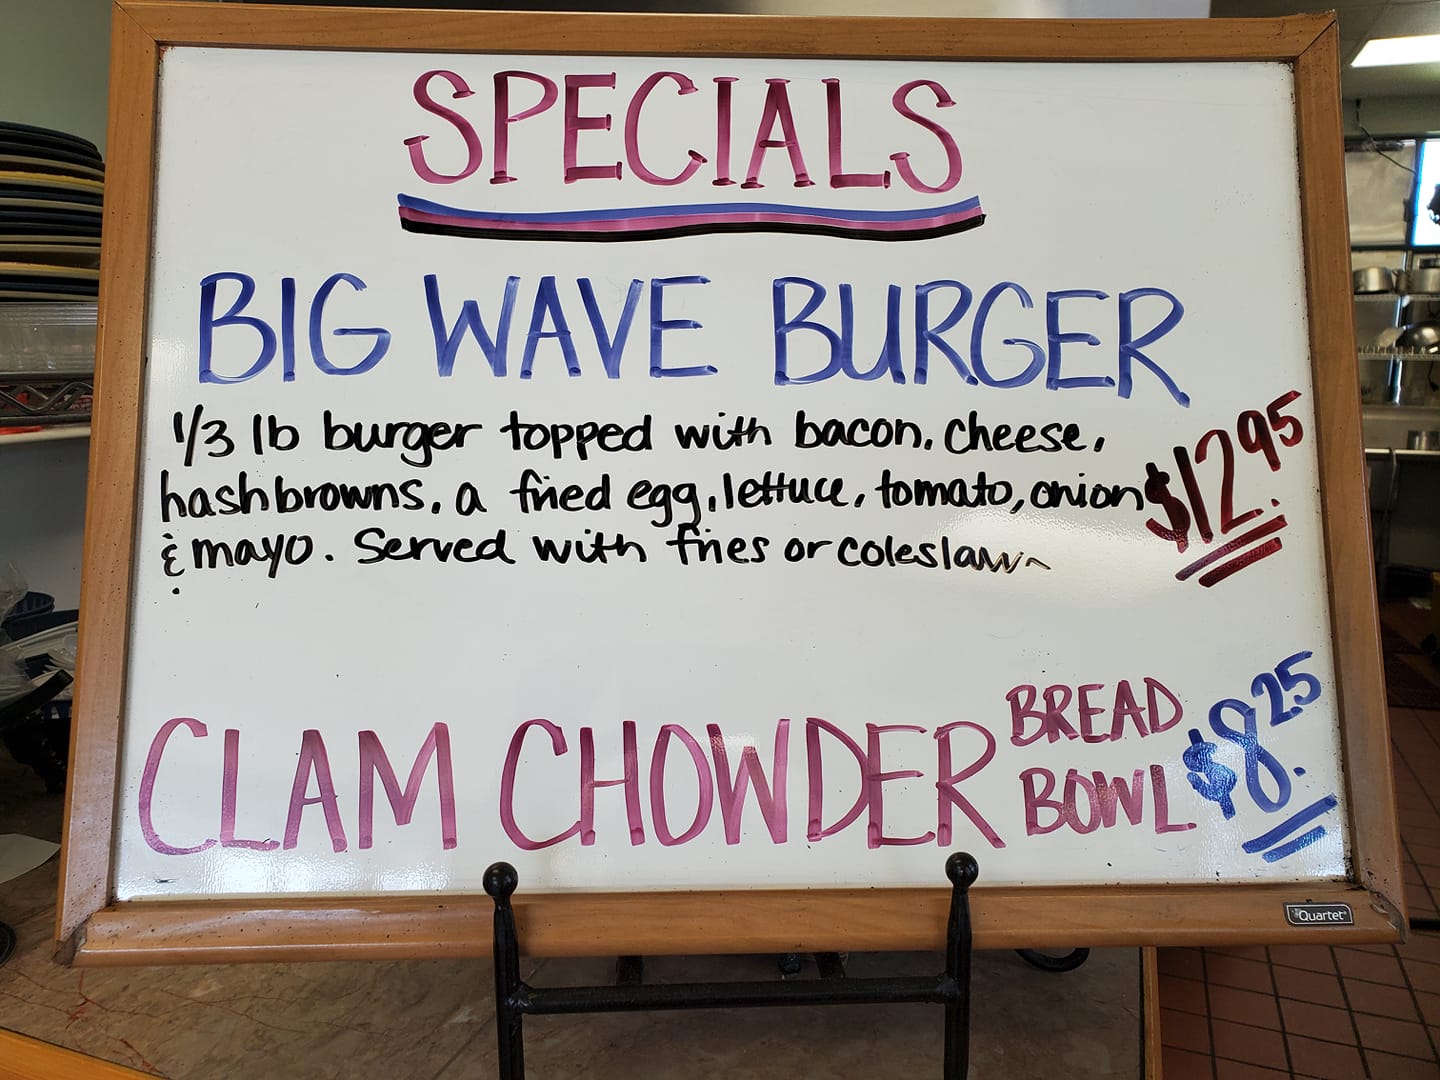 SPECIALS
BIG WAVE BURGER
1/3 lb burger topped with bacon, cheese,
hashbrowns, a fried egg, lettuce, tomato, onion
& mayo. Served with fries or coleslaw~
$12.95
CLAM CHOWDER
BREAD
BOWL
$8.25
Quartet